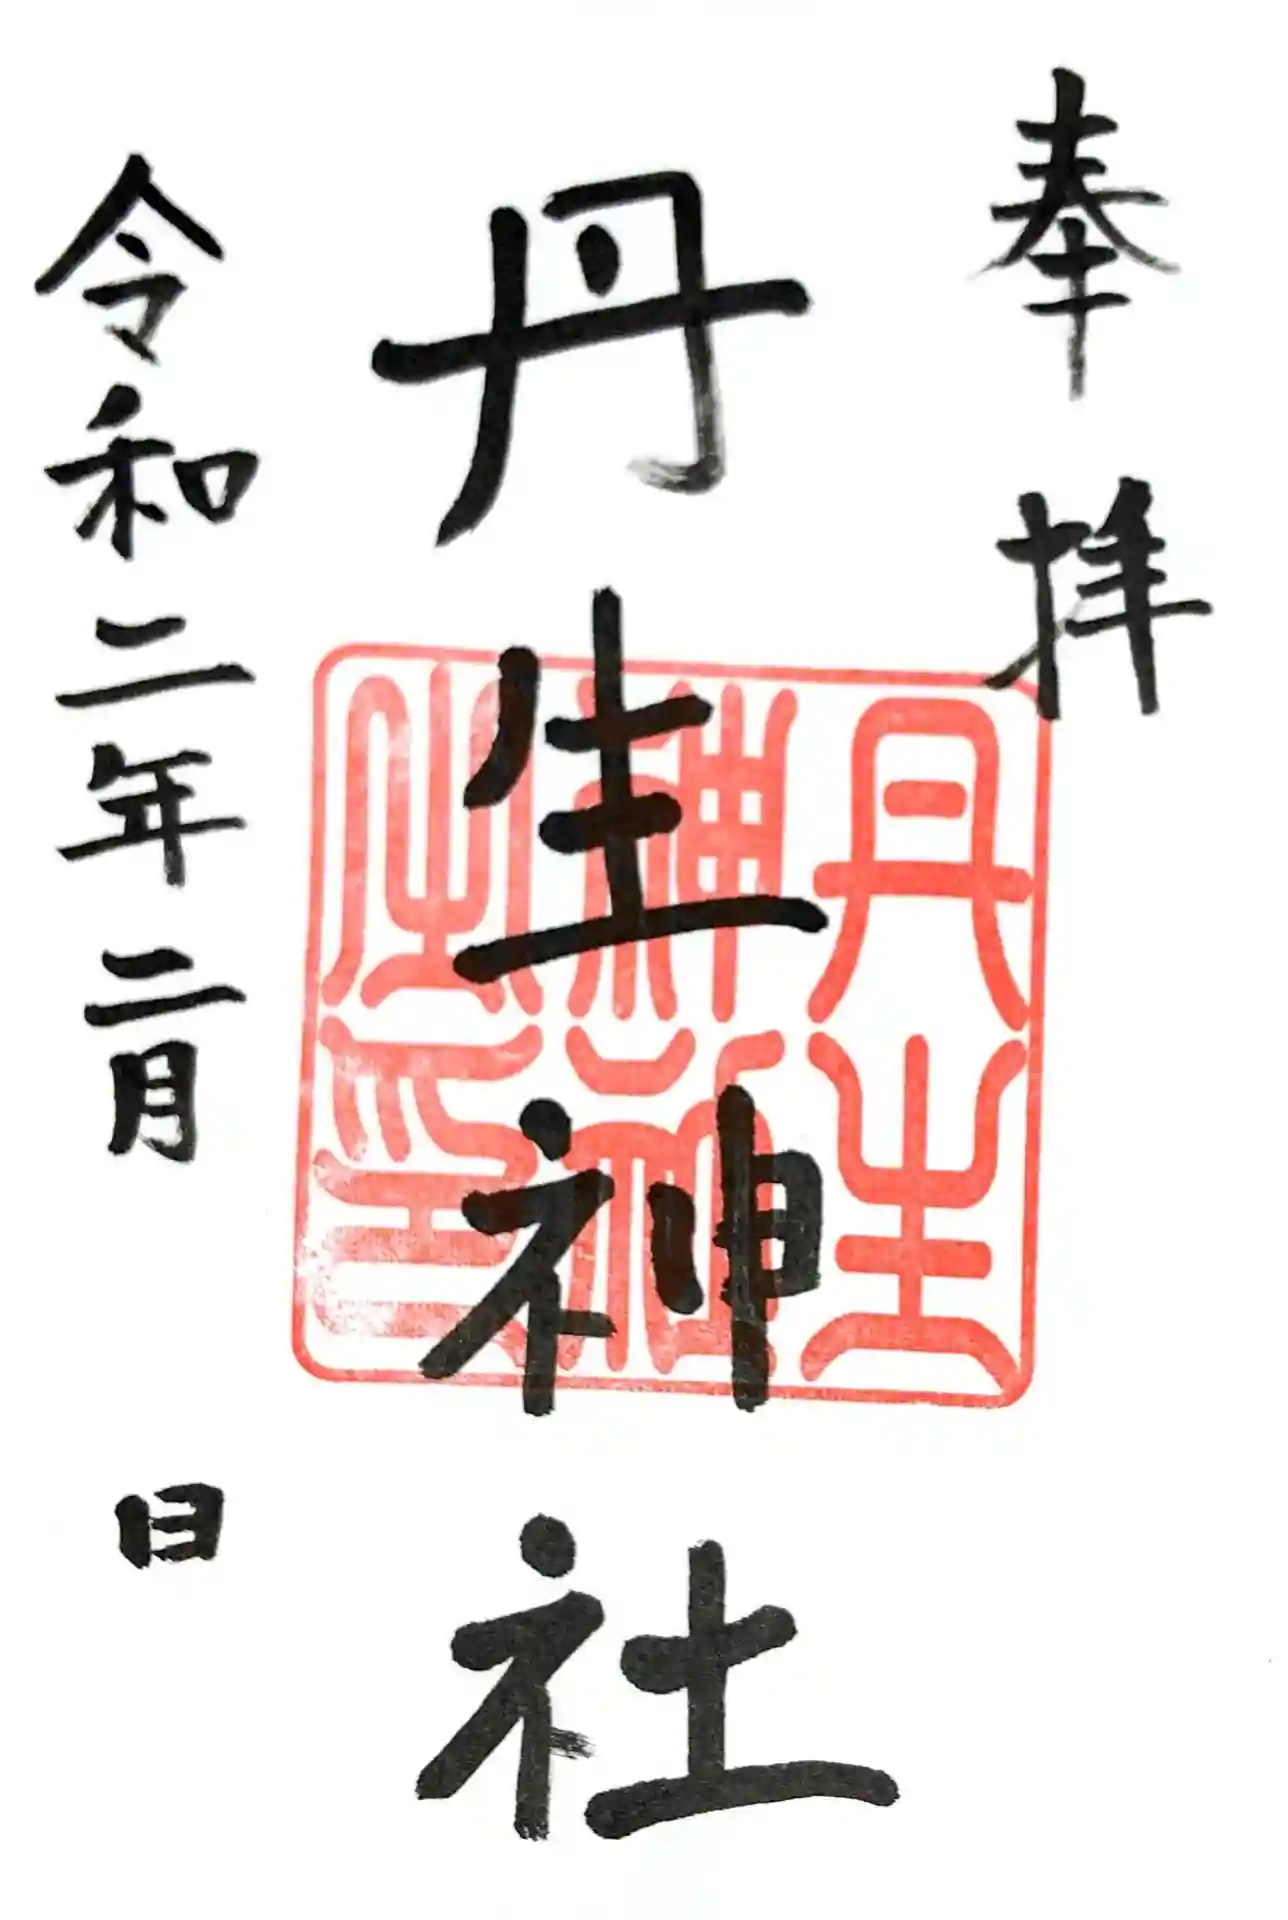 奉拝
丹生神社
丹生
神社
之印
令和二年二月 日